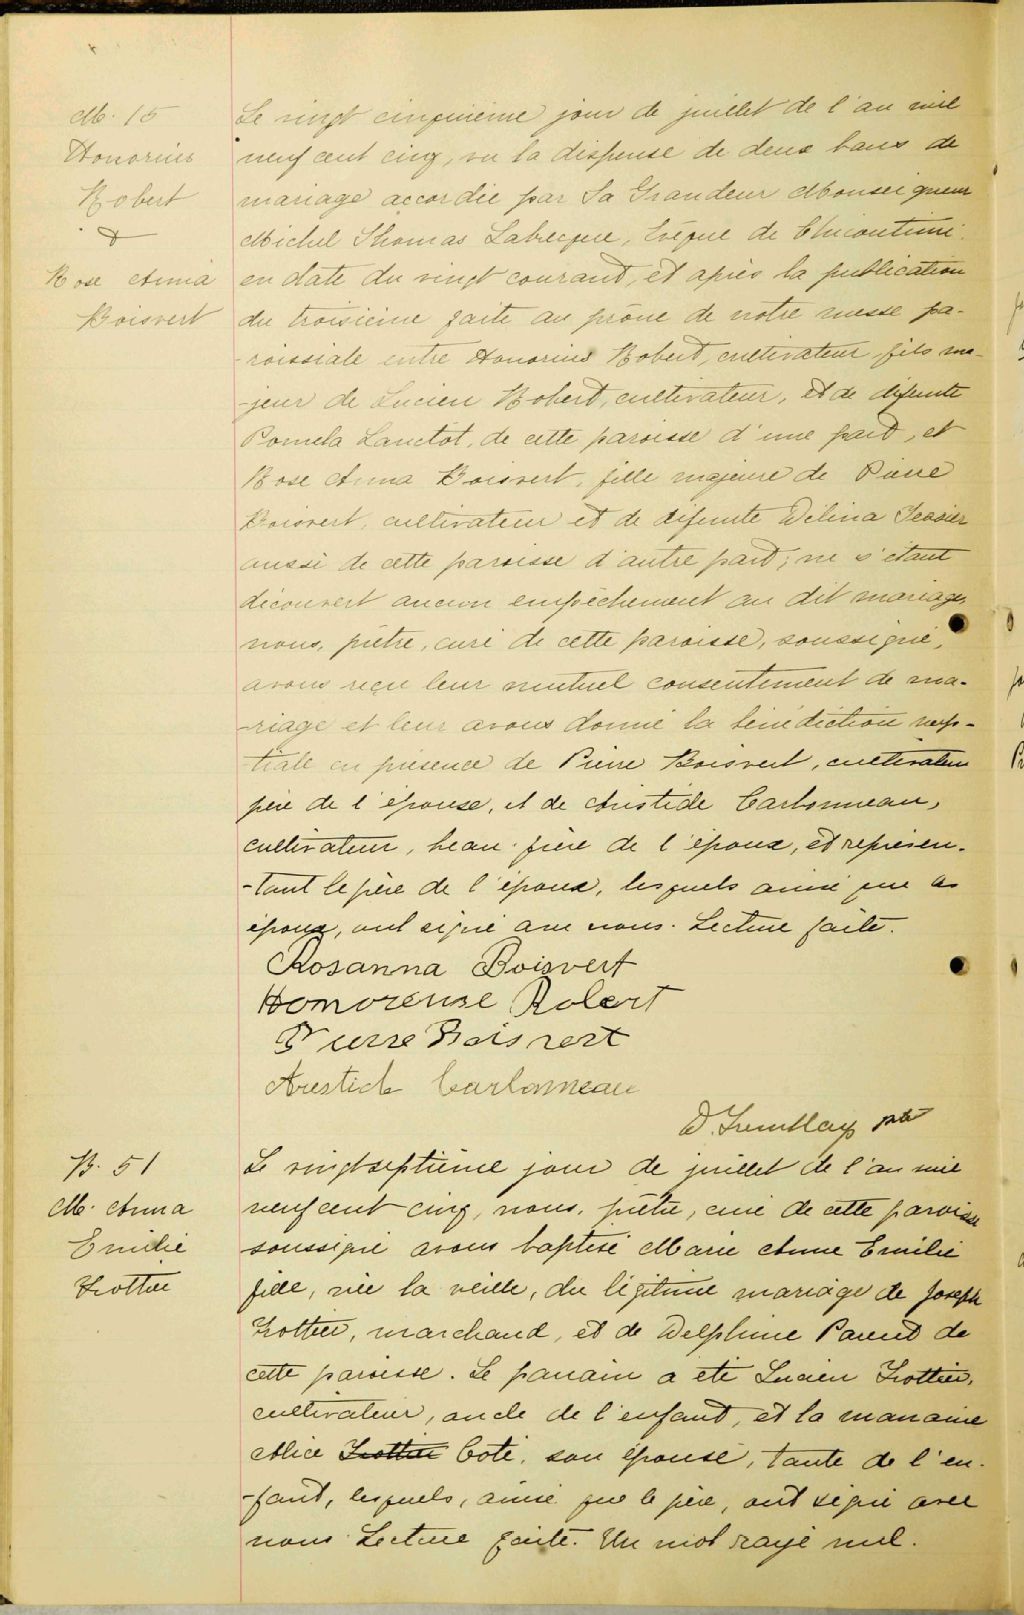 M. 15
Honorius
Robert
&
Rose Anna
Boisvert
Le vingt cinquième jour de juillet de l'an mil
neuf cent cinq, vu la dispense de deux bans de
mariage accordée par Sa Grandeur Monseigneur
Michel Thomas Labrecque, Evêque de Chicoutimi
en date du vingt courant, et après la publication
du troisième faite au prône de notre messe pa-
-roissiale entre Honorius Robert, cultivateur fils ma-
-jeur de Lucien Robert, cultivateur, et de défunte
Pomela Lanctot, de cette paroisse d'une part, et
Rose Anna Boisvert, fille majeure de Pierre
Boisvert, cultivateur et de défunte Délina Tessier
aussi de cette paroisse d'autre part; ne s'étant
découvert aucun empêchement au dit mariage,
nous, prêtre, curé de cette paroisse, soussigné,
avons reçu leur mutuel consentement de ma-
-riage et leur avons donné la bénédiction nup-
-tiale en présence de Pierre Boisvert, cultivateur
père de l'épouse, et de Aristide Carbonneau,
cultivateur, beau-frère de l'époux, et représen-
-tant le père de l'époux, lesquels ainsi que les
époux, ont signé avec nous. Lecture faite.
Rosanna Boisvert
Homoreuse Robert
Pierre Boisvert
Arestide Carbonneau
D. Tremblay ptre
B. 51
M. Anna
Emilie
Trottier
Le vingtseptième jour de juillet de l'an mil
neuf cent cinq, nous, prêtre, curé de cette paroisse
soussigné avons baptisé Marie Anne Emilie
fille, née la veille, du légitime mariage de Joseph
Trottier, marchand, et de Delphine Parent de
cette paroisse. Le parrain a été Lucien Trottier,
cultivateur, oncle de l'enfant, et la marraine
Alice Trottier Coté, son épouse, tante de l'en-
-fant, lesquels, ainsi que le père, ont signé avec
nous. Lecture faite. Un mot rayé nul.